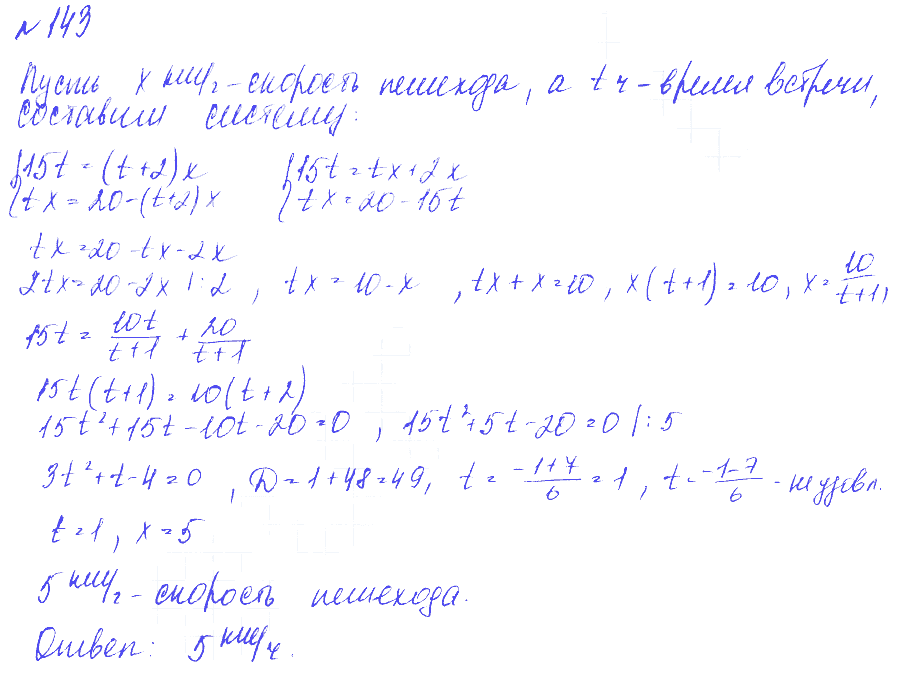 № 143
Пусть x км/ч - скорость пешехода, а t ч - время встречи,
составим систему:
{15t = (t+2)x {15t = tx+2x
{tx = 20-(t+2)x {tx = 20-15t
tx = 20-tx-2x
2tx = 20-2x |:2 , tx = 10-x , tx+x=10, x(t+1)=10, x = 10/(t+1),
15t = 10t/(t+1) + 20/(t+1)
15t(t+1) = 10(t+2)
15t²+15t-10t-20=0 , 15t²+5t-20=0 |:5
3t²+t-4=0 , D=1+48=49, t = (-1+7)/6 = 1 , t = (-1-7)/6 - не удовл.
t=1, x=5
5 км/ч - скорость пешехода.
Ответ: 5 км/ч.